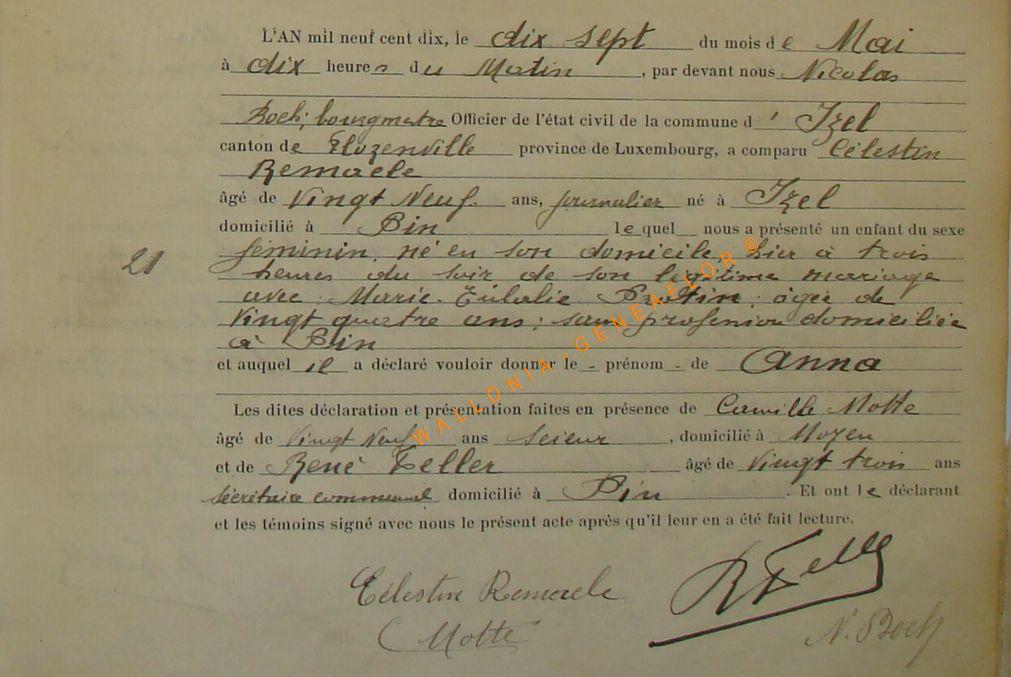 L'AN mil neuf cent dix, le dix sept du mois de Mai
à dix heures du Matin, par devant nous Nicolas
Boch, bourgmetre Officier de l'état civil de la commune d' Izel
canton de Florenville province de Luxembourg, a comparu Célestin
Remacle
âgé de Vingt Neuf. ans, journalier né à Izel
domicilié à Pin lequel nous a présenté un enfant du sexe
féminin, né en son domicile, hier à trois
21 heures du soir de son légitime mariage
avec Marie-Eulalie agée de
vingt quatre ans; sans profession domiciliée
à Pin
et auquel il a déclaré vouloir donner le - prénom - de Anna
Les dites déclaration et présentation faites en présence de Camille Motte
âgé de Vingt Neuf ans Scieur, domicilié à Moyen
et de René Feller âgé de vingt trois ans
sécrétaire communal domicilié à Pin. Et ont le déclarant
et les témoins signé avec nous le présent acte après qu'il leur en a été fait lecture.
Célestin Remacle
R Feller
C Motte
N. Boch
WALLONIA-GENEAFLOR ®